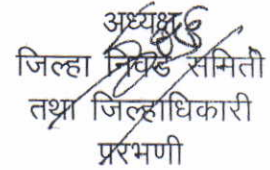 अध्यक्ष
जिल्हा निवड समिती
तथा जिल्हाधिकारी
परभणी